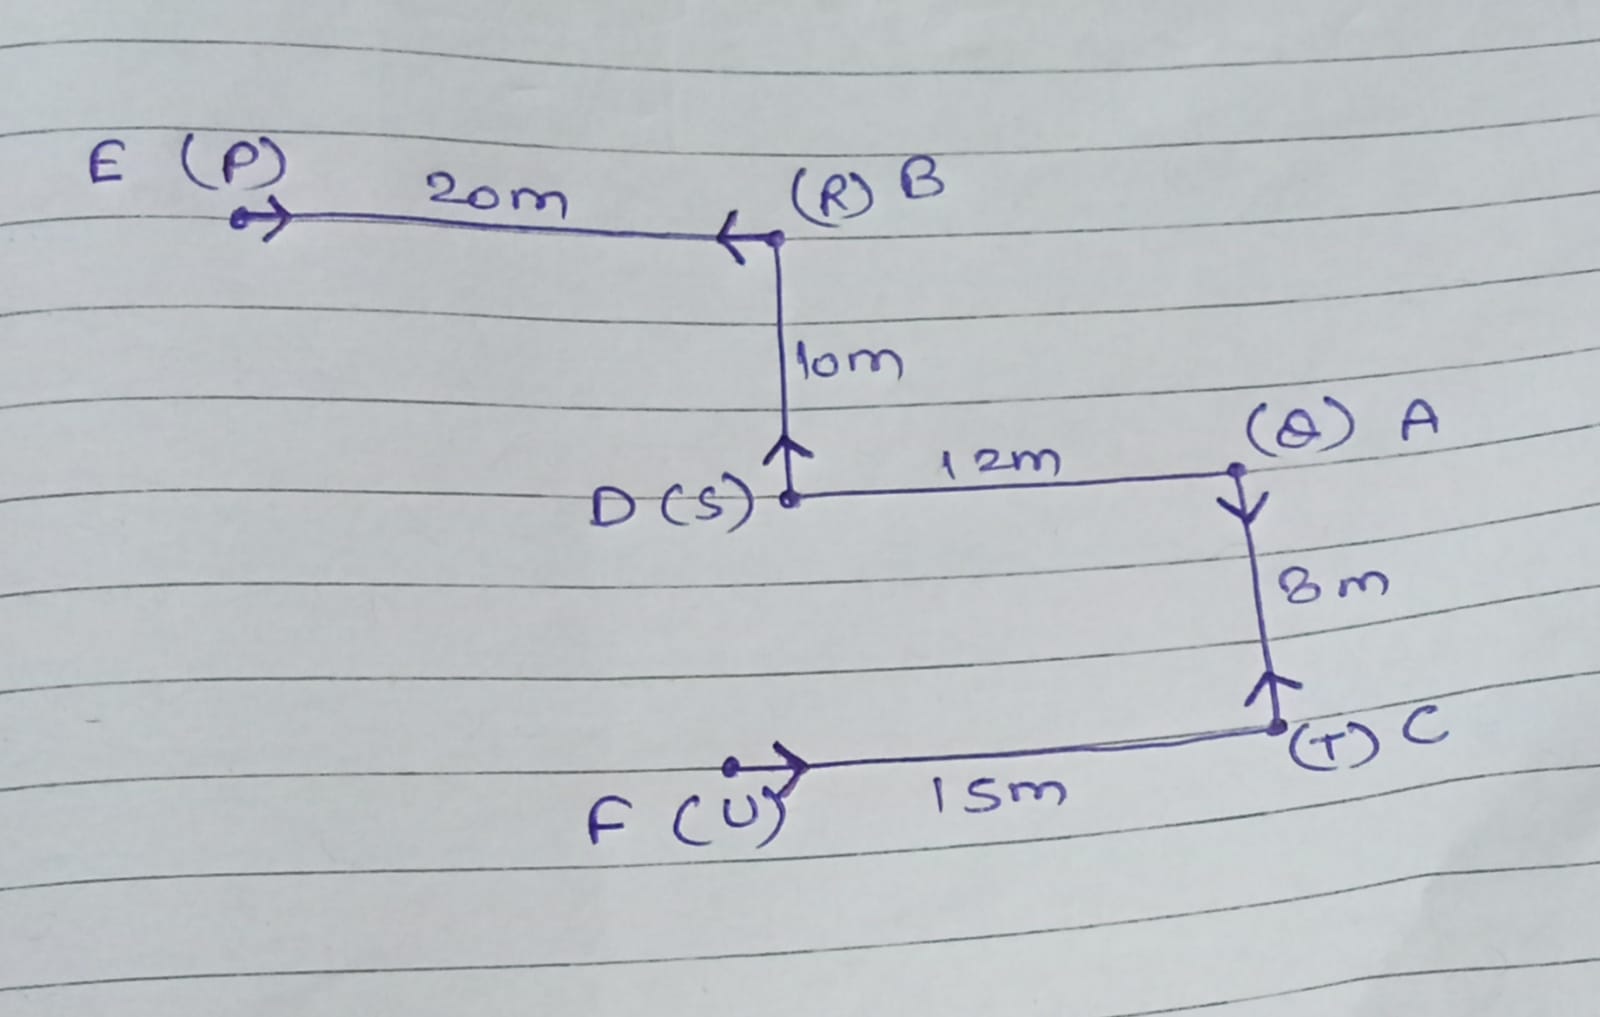 E (P)
20m
(R) B
10m
(Q) A
12m
D (S)
8m
(T) C
15m
F (U)